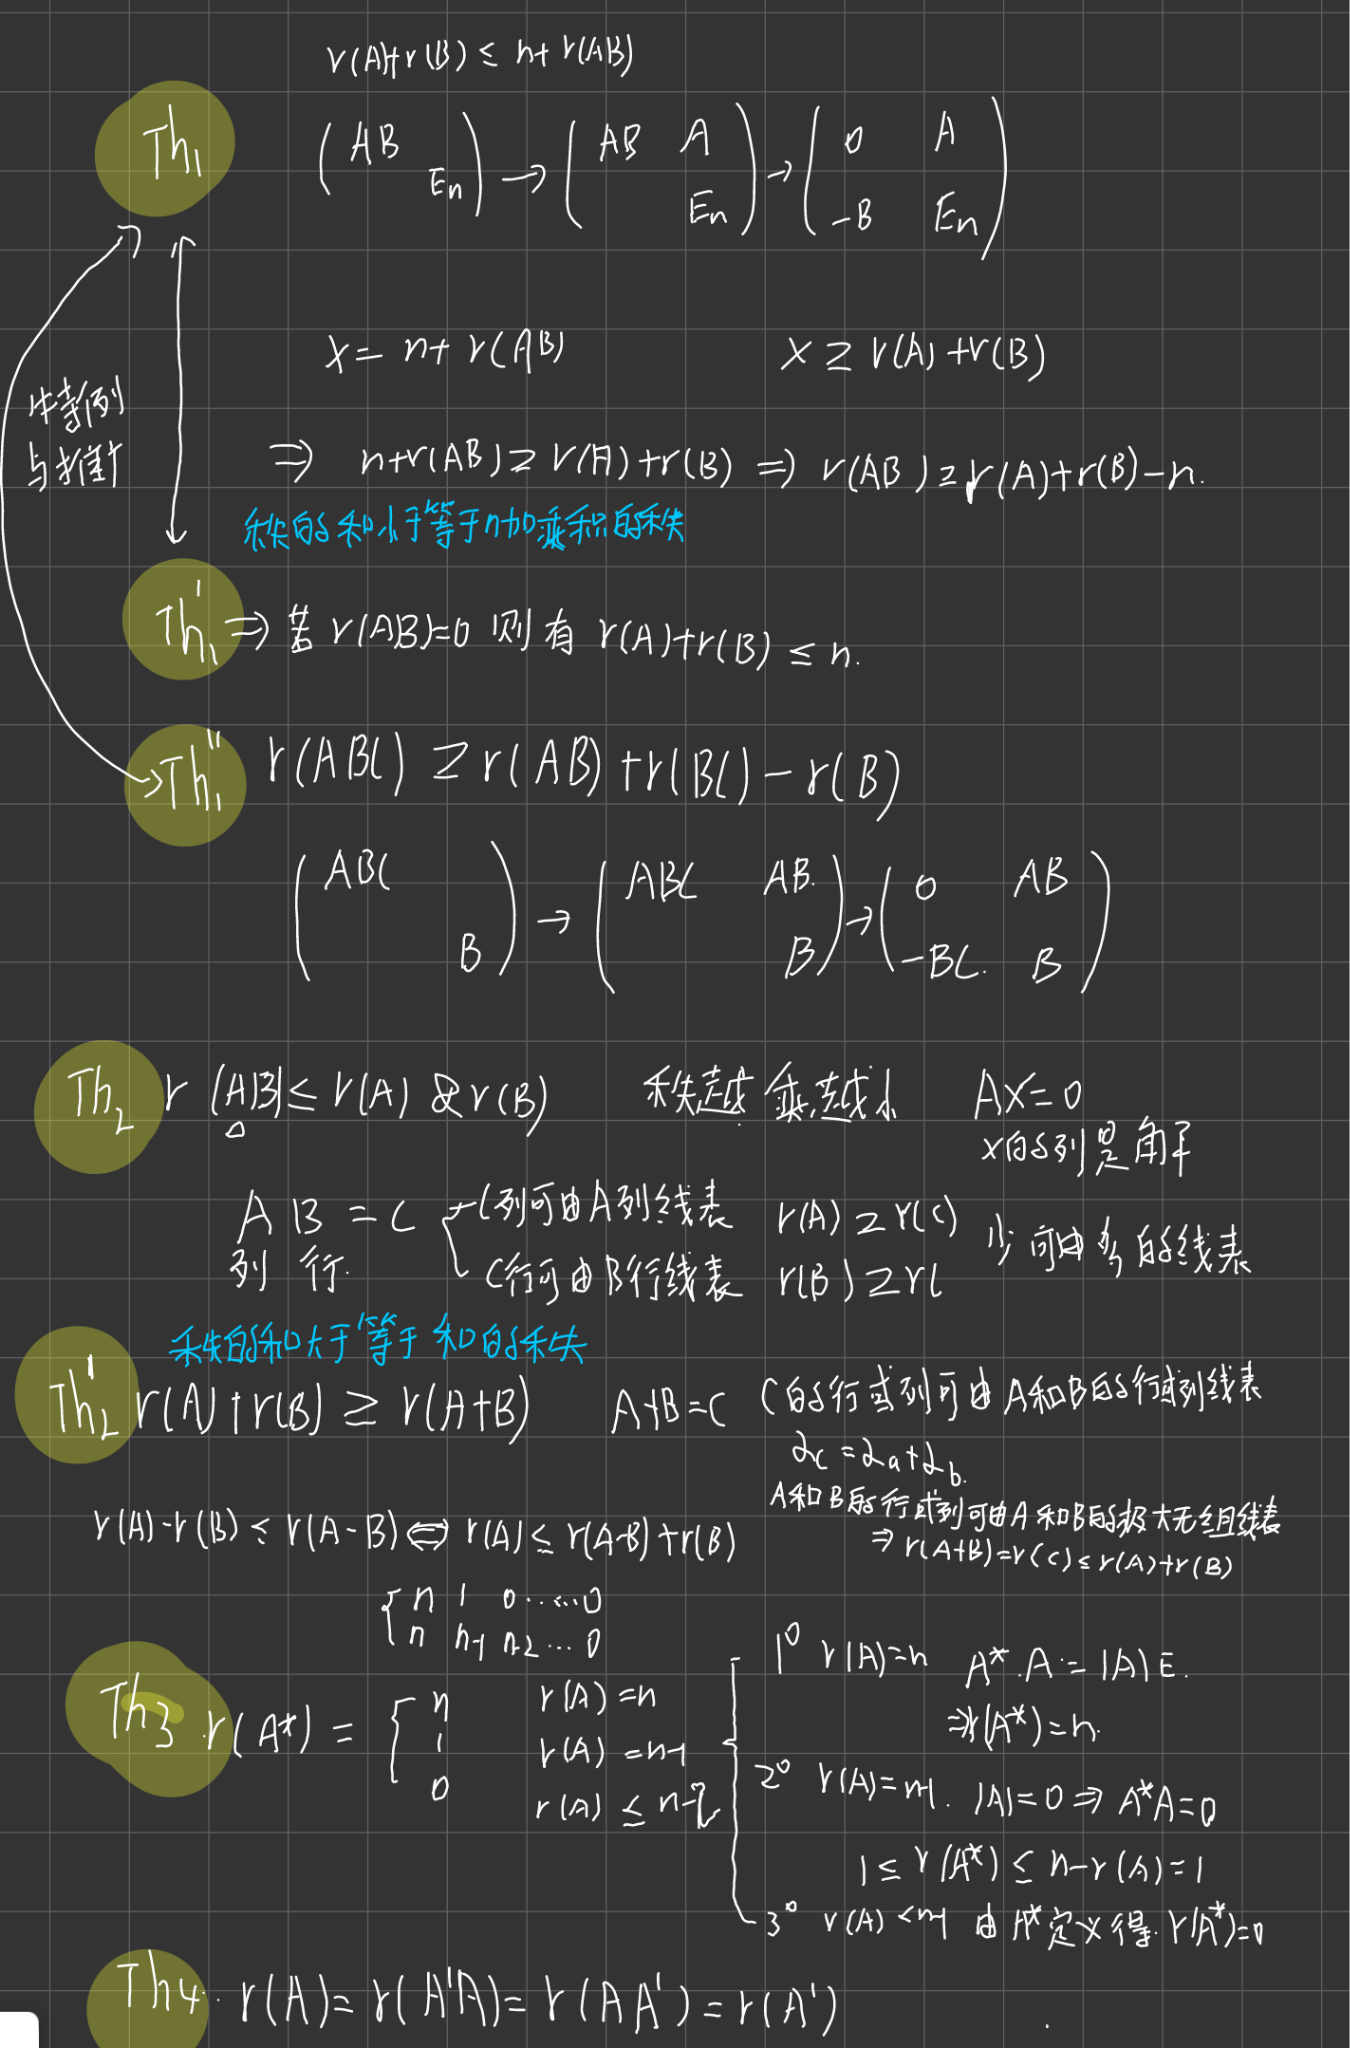 r(A)+r(B) ≤ n+r(AB)
Th₁ (AB  Eₙ) → (AB A  Eₙ) → (0 A -B Eₙ)
X = n+r(AB) X ≥ r(A)+r(B)
特例
与推广
⇒ n+r(AB) ≥ r(A)+r(B) ⇒ r(AB) ≥ r(A)+r(B)-n.
秩的和小于等于n加乘积的秩
Th₁' ⇒ 若 r(AB)=0 则有 r(A)+r(B) ≤ n.
Th₁'' r(ABC) ≥ r(AB)+r(BC)-r(B)
(ABC  B) → (ABC AB.  B) → (0 AB -BC. B)
Th₂ r(AB) ≤ r(A) & r(B) 秩越乘越小 AX=0
X的列是解
AB=C { C列可由A列线表 r(A) ≥ r(C) 少可由多的线表
列 行. C行可由B行线表 r(B) ≥ r(
秩的和大于等于和的秩
Th₂' r(A)+r(B) ≥ r(A+B) A+B=C C的行或列可由A和B的行或列线表
α_c=α_a+α_b.
A和B的行或列可由A和B的极大无组线表
r(A)-r(B) ≤ r(A-B) ⇔ r(A) ≤ r(A-B)+r(B) ⇒ r(A+B)=r(C) ≤ r(A)+r(B)
{ n 1 0......0
n n-1 n-2 ... 0
Th3. r(A*) = { n r(A)=n
1 r(A)=n-1
0 r(A) ≤ n-2
{ 1° r(A)=n A*·A=|A|E.
⇒r(A*)=n.
2° r(A)=n-1. |A|=0 ⇒ A*A=0
1 ≤ r(A*) ≤ n-r(A)=1
3° r(A)<n-1 由A*定义得. r(A*)=0
Th4. r(A)=r(A'A)=r(AA')=r(A')